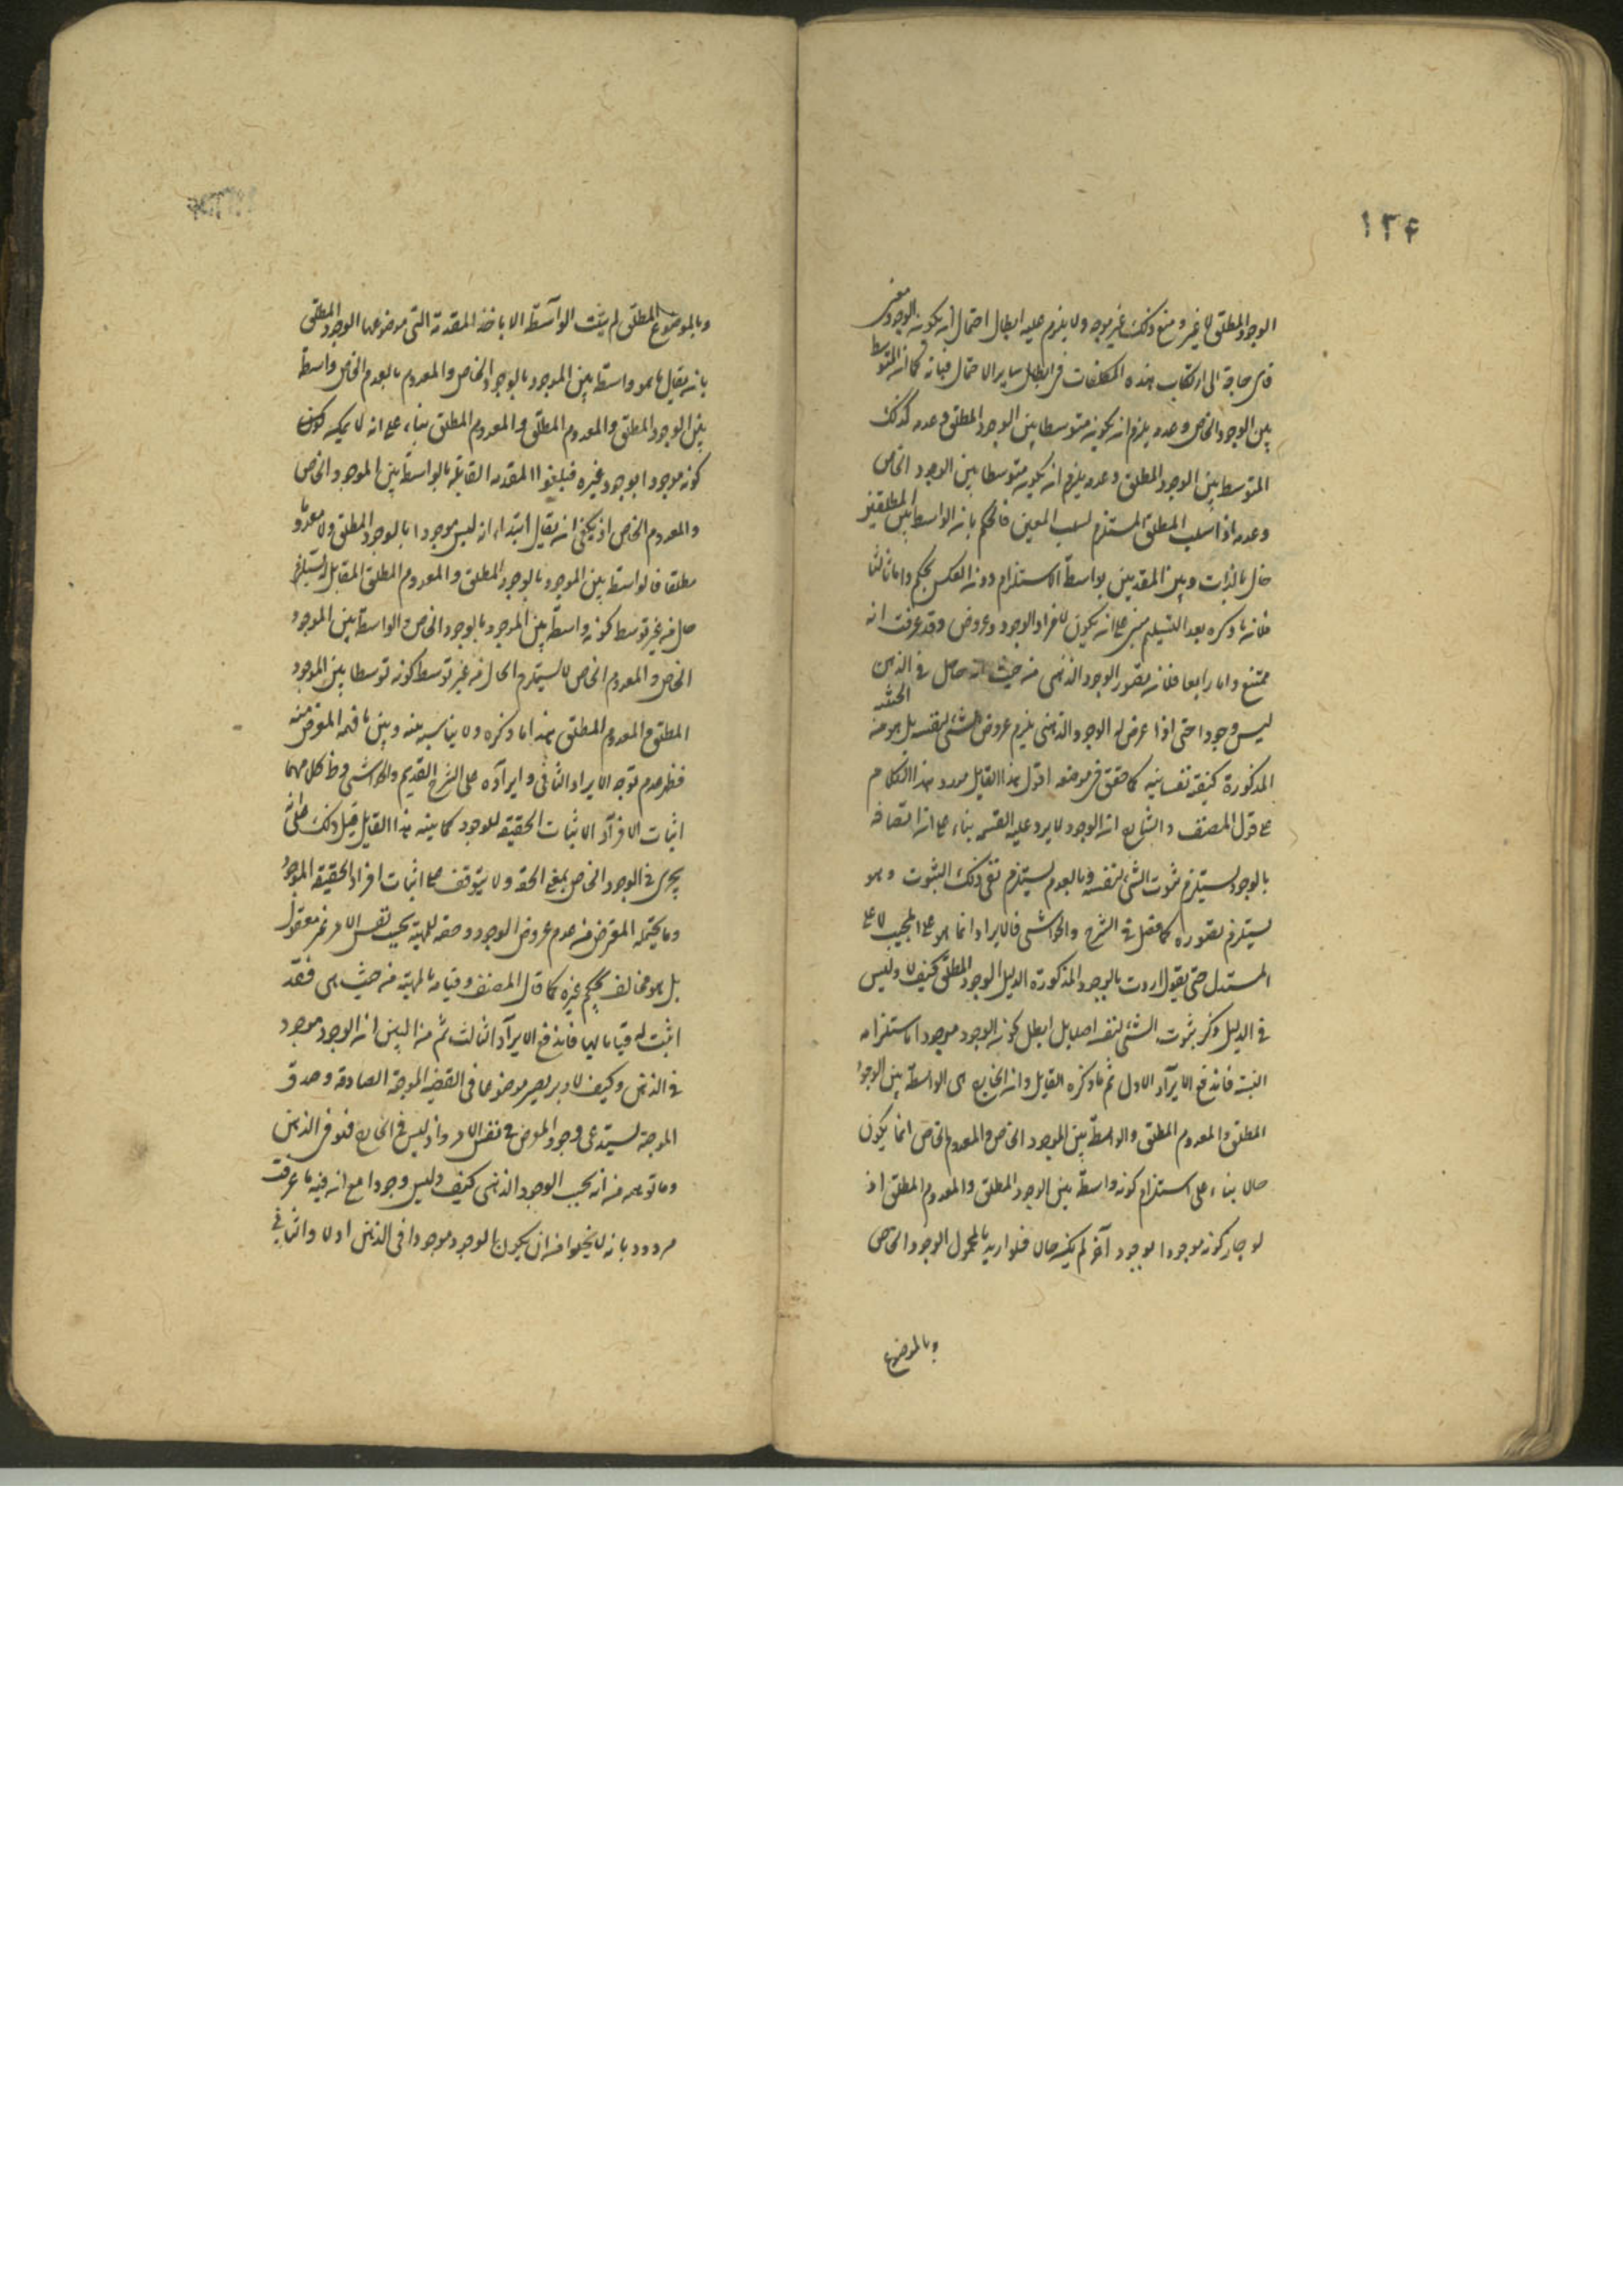 ١٢٤
الوجود المطلق لا غير و منع ذلك غير موجه ولا يلزم عليه ابطال احتمال انه يكون الوجود معنى
فاى حاجة الى ارتكاب هذه التكلفات فى ابطال ساير الاحتمال فبانه كما ان المتوسط
بين الوجود الخاص وعدمه يلزم ان يكون متوسطا بين الوجود المطلق وعدمه كذلك
المتوسط بين الوجود المطلق وعدمه يلزم ان يكون متوسطا بين الوجود الخاص
وعدمه اذ سلب المطلق المستلزم لسلب المعين فالحكم بان الواسطة بين المطلقين
حال بالذات وبين المقيدين بواسطة الاستلزام دون العكس تحكم واما ثالثا
فلان ما ذكره بعد التسليم مبنى على ان يكون لافراد الوجود وعروض وقد عرفت انه
ممتنع واما رابعا فلان تصور الوجود الذهنى من حيث انه حاصل فى الذهن
ليس وجودا حتى اذا عرض له الوجود الذهنى يلزم عروض الشئ لنفسه بل هو من الحيثية
المذكورة كيفية نفسانية كما حقق فى موضعه اقول هذا القايل مورد هذا الكلام
على قول المصنف والشارح ان الوجود لا يرد عليه القسمة بناء على ان اتصافه
بالوجود يستلزم ثبوت الشئ لنفسه وبالعدم يستلزم نفى ذلك الثبوت وهو
يستلزم تصوره كما فصل فى الشرح والحواشى فالايراد انما هو على المجيب لا على
المستدل حتى يقول اردت بالوجود المذكور فى الدليل الوجود المطلق كيف لا وليس
فى الدليل ذكر ثبوت الشئ لنفسه اصلا بل ابطل كون الوجود موجودا باستلزامه
النسبة فاندفع الايراد الاول ثم ما ذكره القايل وان الخارج هى الواسطة بين الوجود
المطلق والمعدوم المطلق والواسطة بين الموجود الخاص والمعدوم الخاص انما يكون
حالا بناء على استلزام كونه واسطة بين الوجود المطلق والمعدوم المطلق اذ
لو جاز كونه موجودا بوجود آخر لم يكن حالا فلو اريد بالمحمول الوجود الخاص
وبالموضوع
وبالموضوع المطلق لم يثبت الواسطة الا باخذ المقدمة التى موضوعها الوجود المطلق
بانه يقال ما هو واسطة بين الموجود بالوجود الخاص والمعدوم بالعدم الخاص واسطة
بين الوجود المطلق والمعدوم المطلق والمعدوم المطلق بناء على انه لا يمكن
كونه موجودا بوجود غيره فيلغوا المقدمة القايلة بالواسطة بين الموجود الخاص
والمعدوم الخاص اذ يكفى ان يقال ابتداء انه ليس موجودا بالوجود المطلق ولا معدوما
مطلقا فالواسطة بين الموجود بالوجود المطلق والمعدوم المطلق المقابل له يستلزم
حل من غير توسط كونه واسطة بين الموجود بالوجود الخاص والواسطة بين الموجود
الخاص والمعدوم الخاص لا يستلزم الحال من غير توسط كونه توسطا بين الموجود
المطلق والمعدوم المطلق هذا ما ذكره ولا يناسبه بينه وبين ما فهمه المعترض منه
فظهر عدم توجه الايراد الثانى وايراده على الشرح القديم والحواشى وظ كل منهما
اثبات الافراد لاثبات الحقيقة للوجود كما بينه هذا القايل قبل ذلك على انه
يجرى فى الوجود الخاص بمعنى الحصة ولا يتوقف على اثبات افراد الحقيقة الموجود
وما يحتمله المعترض من عدم عروض الوجود وحصه للمهية بحسب نفس الامر غير معقول
بل هو مخالف لحكم غيره كما قال المصنف وقيامه بالمهية من حيث هى فقد
اثبت له قياما بها فاندفع الايراد الثالث ثم من البين ان الوجود موجود
فى الذهن وكيف لا وهو يصير موضوعا فى القضية الموجبة الصادقة وصدق
الموجبة يستدعى وجود الموضوع فى نفس الامر واذ ليس فى الخارج فهو فى الذهن
وما توهمه من انه بحسب الوجود الذهنى كيف وليس وجودا مع ان فيه ما عرفت
مردود بانه لا يخلوا من ان يكون الوجود موجودا فى الذهن اولا والثانى